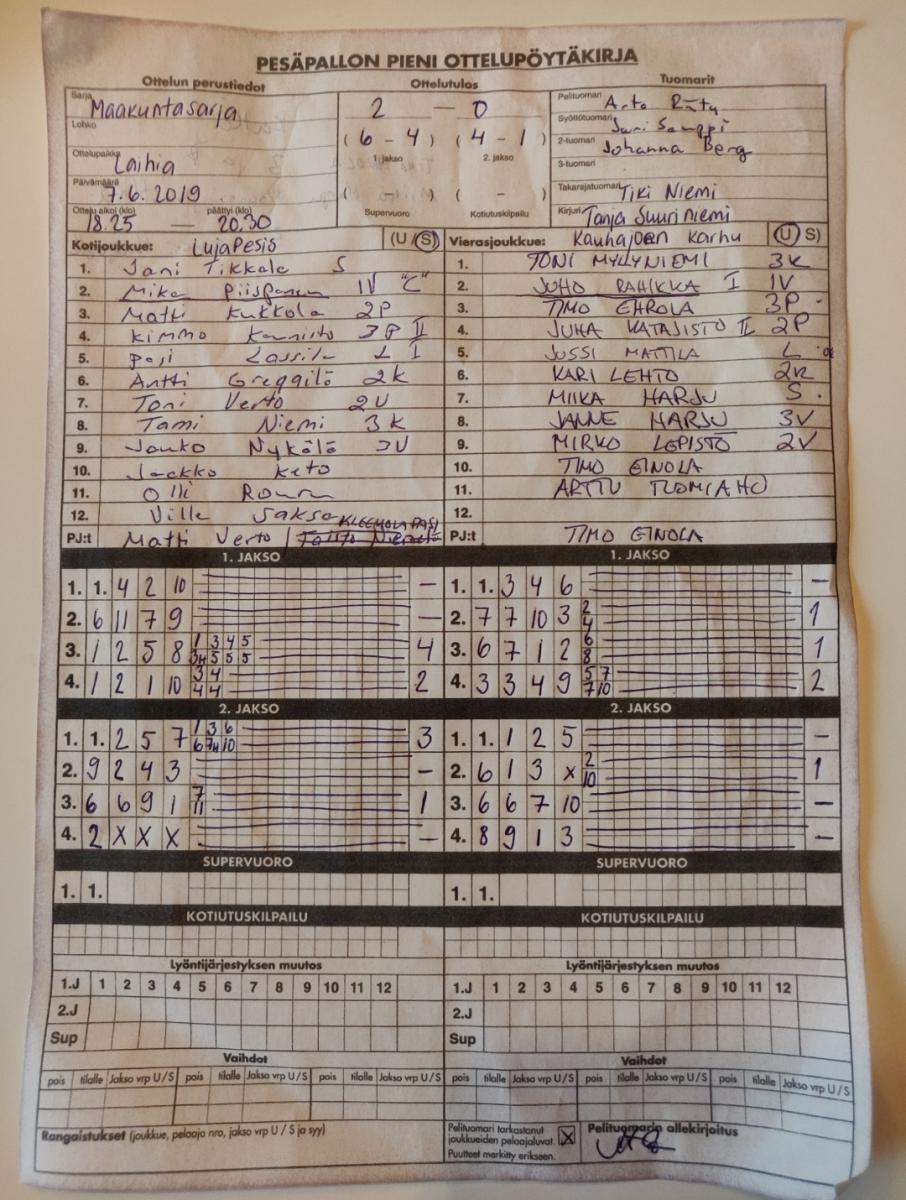 PESÄPALLON PIENI OTTELUPÖYTÄKIRJA
Ottelun perustiedot
Sarja Maakuntasarja
Lohko
Ottelupaikka Laihia
Päivämäärä 7.6.2019
Ottelu alkoi (klo) 18.25 — päättyi (klo) 20.30
Ottelutulos
2 — 0
(6 - 4) (4 - 1)
1. jakso 2. jakso
( - ) ( - )
Supervuoro Kotiutuskilpailu
Tuomarit
Pelituomari Arto
Syöttötuomari
2-tuomari Johanna Berg
3-tuomari
Takarajatuomari Tiki Niemi
Kirjuri Tanja Suuriniemi
Kotijoukkue: LujaPesis (U / S)
1. Jani Tikkala S
2. Mika 1V "C"
3. Matti Kukkola 2P
4. Kimmo Kannisto 3P II
5. Pasi Lassila L I
6. Antti 2K
7. Toni Verto 2V
8. Tami Niemi 3K
9. Jouko Nykälä 3V
10. Keto
11. Olli
12. Ville
PJ:t Matti Verto / KLEEMOLA PASI
Vierasjoukkue: Kauhajoen Karhu (U / S)
1. TONI MYLLYNIEMI 3K
2. JUHO RAHIKKA I 1V
3. TIMO EHROLA 3P
4. JUHA KATAJISTO II 2P
5. JUSSI MATTILA L
6. KARI LEHTO 2K
7. MIIKA HARJU S
8. JANNE HARJU 3V
9. MIRKO LEPISTÖ 2V
10. TIMO EINOLA
11. ARTTU
12.
PJ:t TIMO EINOLA
1. JAKSO
1. 1. 4 2 10 —
2. 6 11 7 9 —
3. 1 2 5 8 1 3 4 5 4
3H 5 5 5
4. 1 2 1 10 3 4 2
4 4
1. JAKSO
1. 1. 3 4 6 —
2. 7 7 10 3 2 1
4
3. 6 7 1 2 6 1
8
4. 3 3 4 9 5 7 2
7 10
2. JAKSO
1. 1. 2 5 7 1 3 6 3
6 7H 10
2. 9 2 4 3 —
3. 6 6 9 1 7 1
11
4. 2 X X X —
2. JAKSO
1. 1. 1 2 5 —
2. 6 1 3 X 2 1
10
3. 6 6 7 10 —
4. 8 9 1 3 —
SUPERVUORO SUPERVUORO
1. 1. 1. 1.
KOTIUTUSKILPAILU KOTIUTUSKILPAILU
Lyöntijärjestyksen muutos Lyöntijärjestyksen muutos
1.J 1 2 3 4 5 6 7 8 9 10 11 12 1.J 1 2 3 4 5 6 7 8 9 10 11 12
2.J 2.J
Sup Sup
Vaihdot Vaihdot
pois tilalle Jakso vrp U/S pois tilalle Jakso vrp U/S pois tilalle Jakso vrp U/S pois tilalle Jakso vrp U/S pois tilalle Jakso vrp U/S pois tilalle Jakso vrp U/S
Rangaistukset (joukkue, pelaaja nro, jakso vrp U / S ja syy)
Pelituomari tarkastanut
joukkueiden pelaajaluvat. X
Puutteet merkitty erikseen.
Pelituomarin allekirjoitus